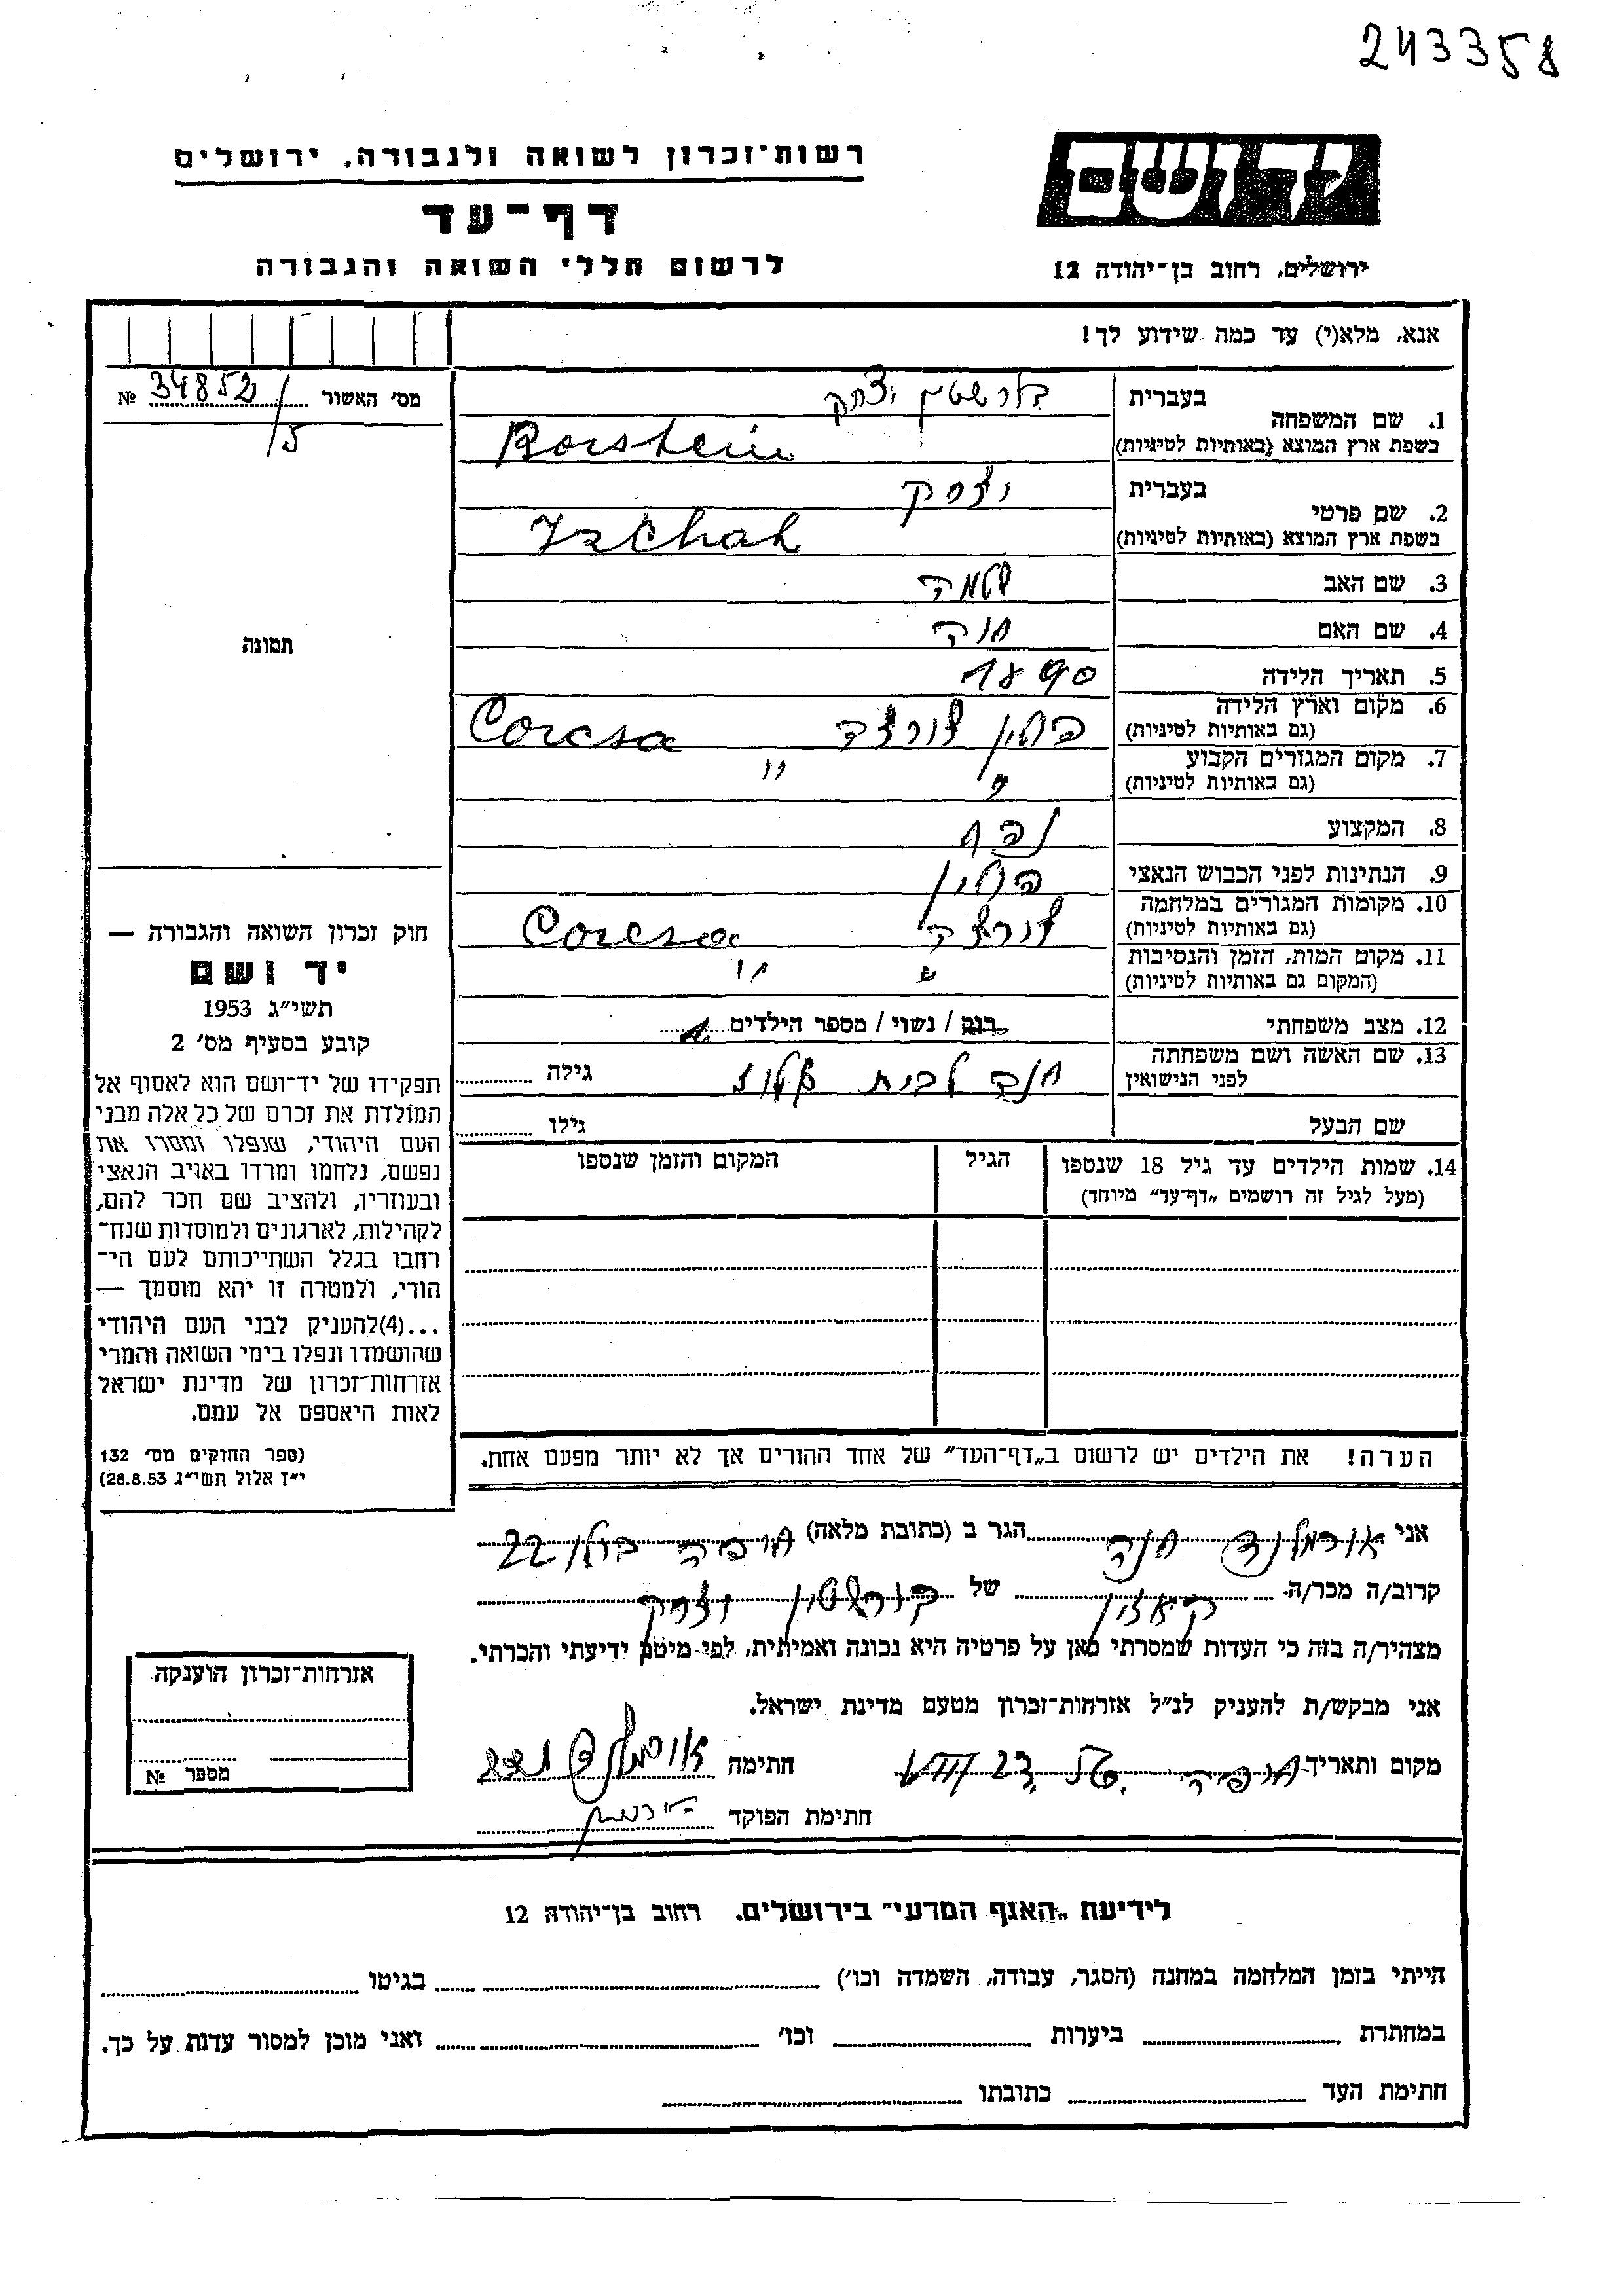 243358
רשות־זכרון לשואה ולגבורה, ירושלים
ידושם
דף־עד
לרשום חללי השואה והגבורה
ירושלים, רחוב בן־יהודה 12
אנא, מלא(י) עד כמה שידוע לך!
מס׳ האשור 34852/5 №
1. שם המשפחה
בעברית בורשטין יצחק
בשפת ארץ המוצא (באותיות לטיניות) Borstein
2. שם פרטי
בעברית יצחק
בשפת ארץ המוצא (באותיות לטיניות) Izchak
3. שם האב שלמה
4. שם האם חנה
5. תאריך הלידה 1890
6. מקום וארץ הלידה
(גם באותיות לטיניות) פולין Corcsa
7. מקום המגורים הקבוע
(גם באותיות לטיניות) " "
8. המקצוע
9. הנתינות לפני הכבוש הנאצי פולין
10. מקומות המגורים במלחמה
(גם באותיות לטיניות) Corcsa
11. מקום המות, הזמן והנסיבות
(המקום גם באותיות לטיניות) " "
12. מצב משפחתי רוק / נשוי / מספר הילדים
13. שם האשה ושם משפחתה
לפני הנישואין חנה לבית גילה
שם הבעל גילו
14. שמות הילדים עד גיל 18 שנספו
(מעל לגיל זה רושמים „דף־עד״ מיוחד)
הגיל
המקום והזמן שנספו
הערה! את הילדים יש לרשום ב„דף־העד״ של אחד ההורים אך לא יותר מפעם אחת.
תמונה
חוק זכרון השואה והגבורה —
יד ושם
תשי״ג 1953
קובע בסעיף מס׳ 2
תפקידו של יד־ושם הוא לאסוף אל
המולדת את זכרם של כל אלה מבני
העם היהודי, שנפלו ומסרו את
נפשם, נלחמו ומרדו באויב הנאצי
ובעוזריו, ולהציב שם וזכר להם,
לקהילות, לארגונים ולמוסדות שנח־
רבו בגלל השתייכותם לעם הי־
הודי, ולמטרה זו יהא מוסמך —
...(4)להעניק לבני העם היהודי
שהושמדו ונפלו בימי השואה והמרי
אזרחות־זכרון של מדינת ישראל
לאות היאספם אל עמם.
(ספר החוקים מס׳ 132
י״ז אלול תשי״ג 28.8.53)
אני חנה הגר ב (כתובת מלאה) חיפה 22
קרוב/ה מכר/ה של בורשטין יצחק
מצהיר/ה בזה כי העדות שמסרתי כאן על פרטיה היא נכונה ואמיתית, לפי מיטב ידיעתי והכרתי.
אני מבקש/ת להעניק לנ״ל אזרחות־זכרון מטעם מדינת ישראל.
מקום ותאריך חיפה חתימה
חתימת הפוקד
אזרחות־זכרון הוענקה
מספר №
לידיעת „האגף המדעי״ בירושלים, רחוב בן־יהודה 12
הייתי בזמן המלחמה במחנה (הסגר, עבודה, השמדה וכו׳) בגיטו
במחתרת ביערות וכו׳ ואני מוכן למסור עדות על כך.
חתימת העד כתובתו